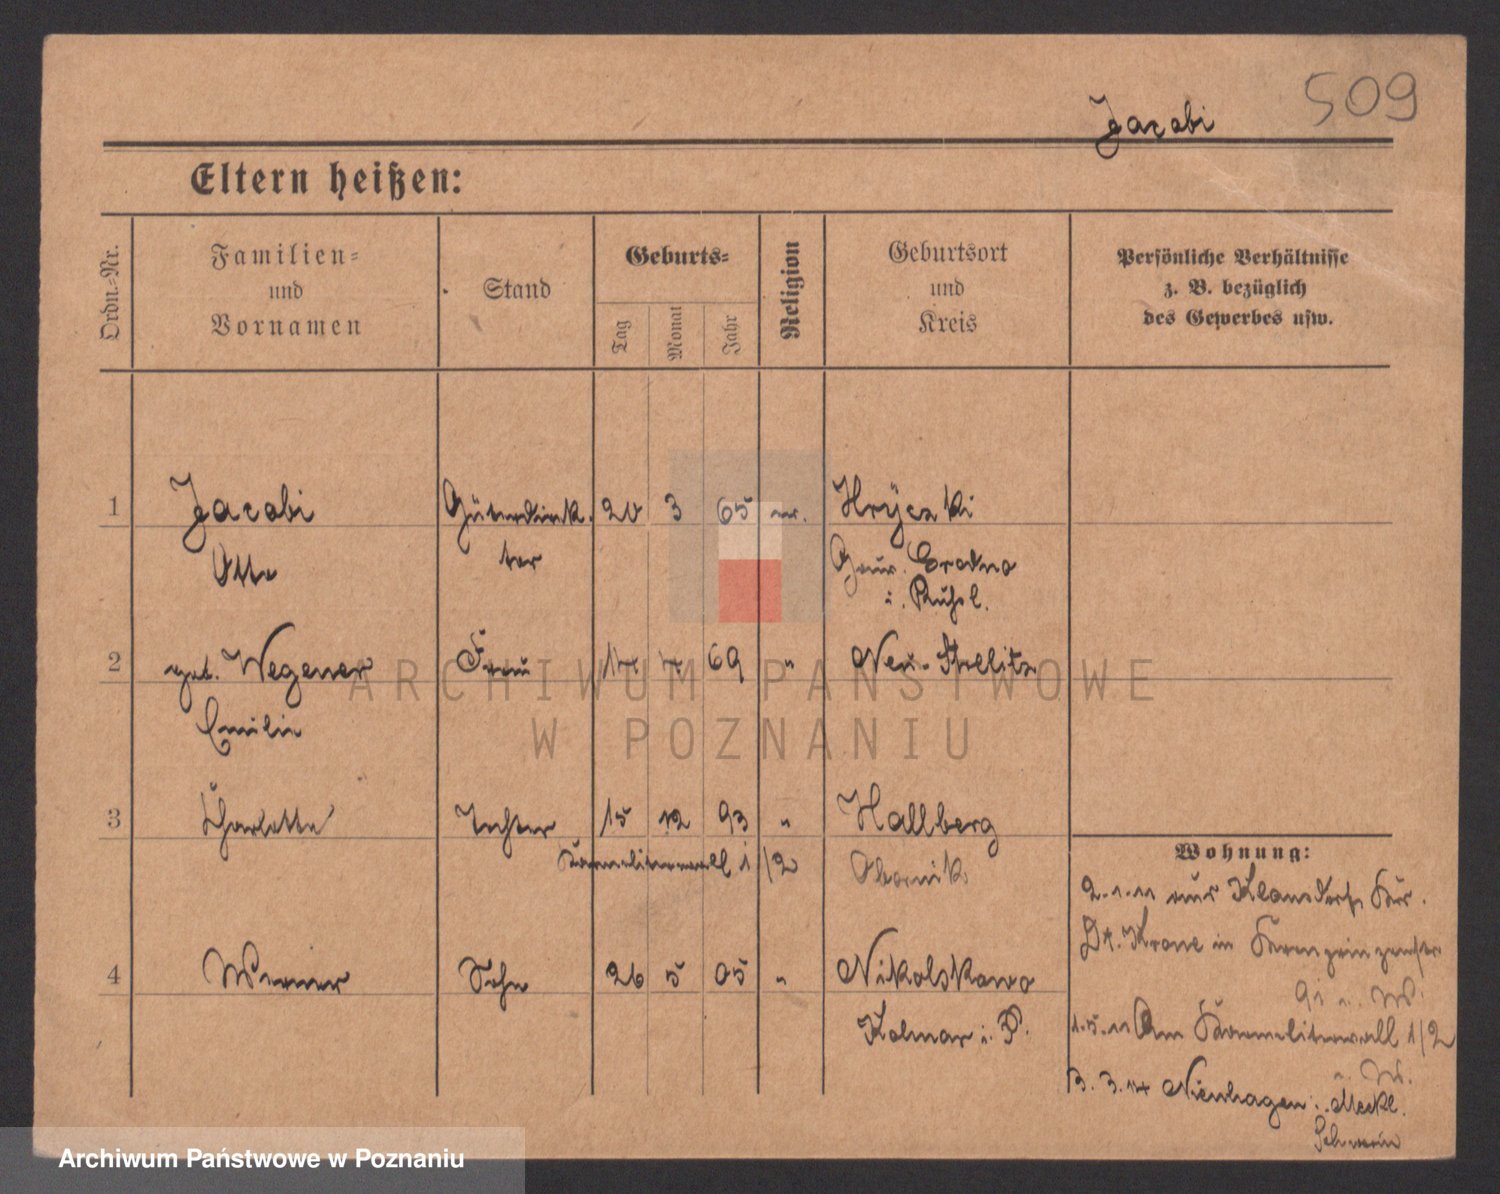 Jacobi 509
Eltern heißen:
Ordn.-Nr.
Familien-
und
Vornamen
Stand
Geburts-
Tag
Monat
Jahr
Religion
Geburtsort
und
Kreis
Persönliche Verhältnisse
z. B. bezüglich
des Gewerbes usw.
1 Jacobi Güterdirek. 20 3 65 ev. Hryczki
Otto tor Gouv. Grodno
i. Rußl.
2 geb. Wegener Frau 14 4 69 " Neu-Strelitz
Emilie
3 Charlotte Tochter 15 12 93 " Hallberg
Karmeliterwall 1/2 Obornik
4 Werner Sohn 26 5 05 " Nikolskowo
Kolmar i. P.
Wohnung:
2.1.11 aus Klausdorf, Kr.
Dt. Krone in
u. W.
1.5.11 Am Karmeliterwall 1/2
u. W.
3.3.14 Nienhagen i. Meckl.
Schwerin
ARCHIWUM PAŃSTWOWE
W POZNANIU
Archiwum Państwowe w Poznaniu